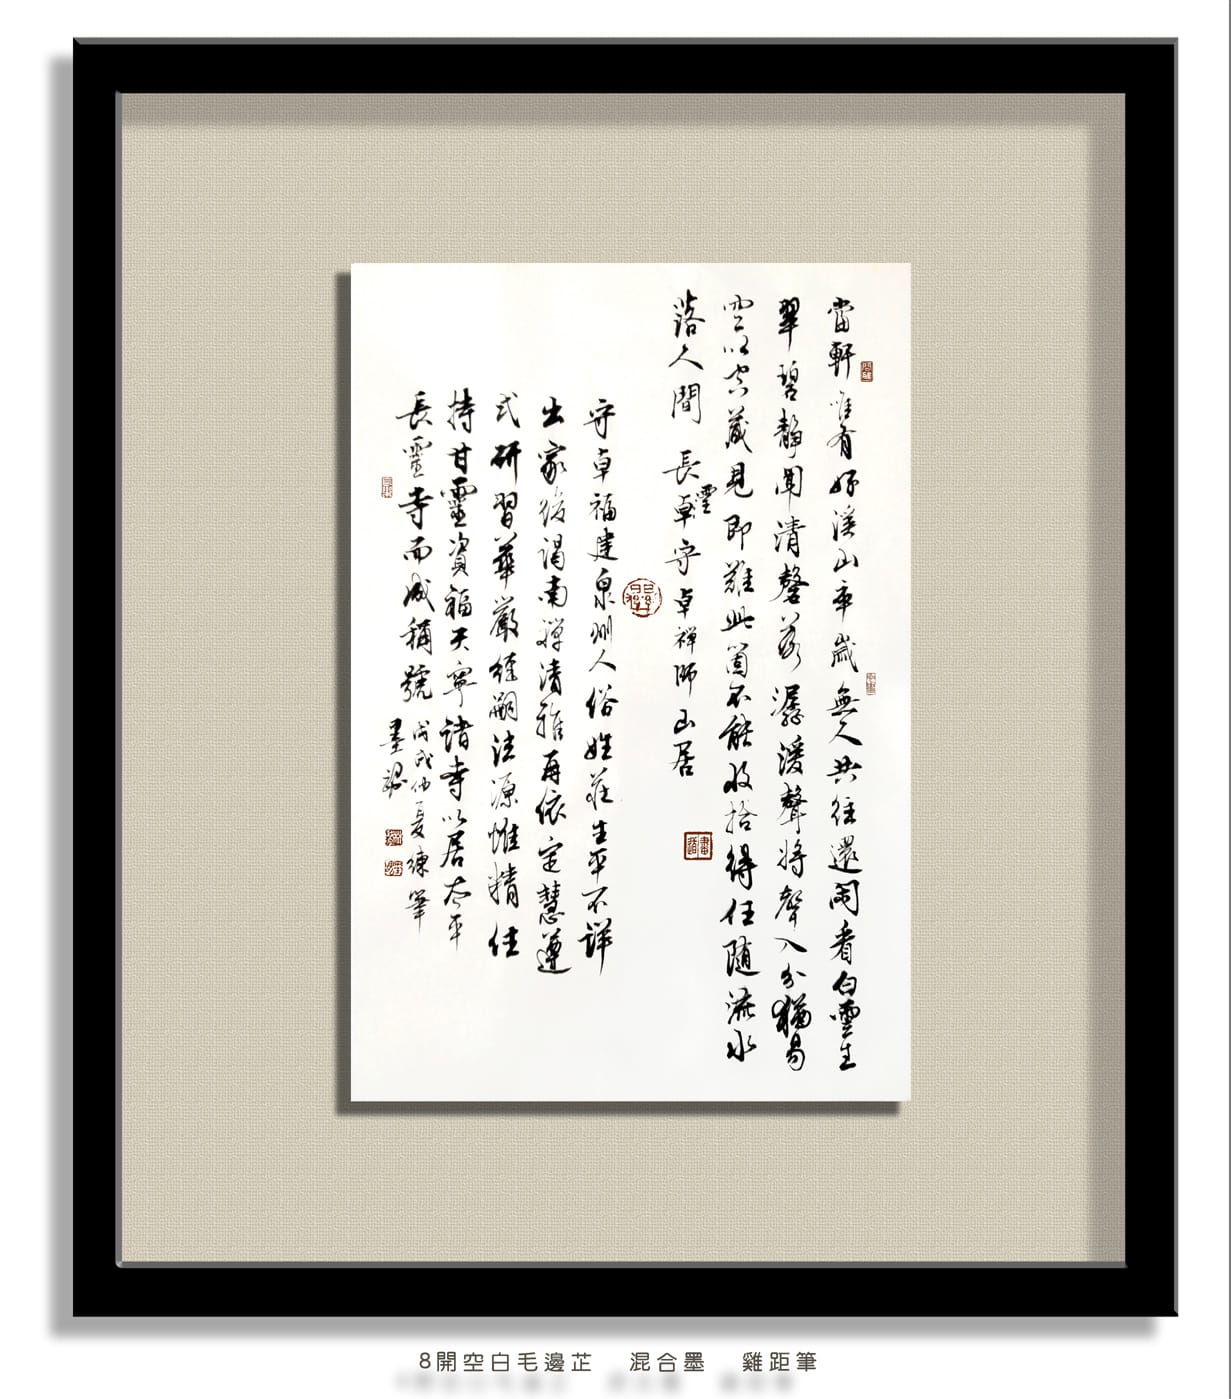 當軒唯有好溪山卒歲無人共往還閑看白雲生
翠碧靜聞清磬落潺湲聲將聲入分猶易
空以空藏見即難此箇不能收拾得任隨流水
落人間 長靈卓守卓禪師山居
守卓福建泉州人俗姓莊生平不詳
出家後謁南禪清雅再依定慧遵
式研習華嚴經嗣法源惟清住
持甘靈資福天寧諸寺以居太平
長靈寺而成稱號 戊戌仲夏練筆
墨
8開空白毛邊芷 混合墨 雞距筆